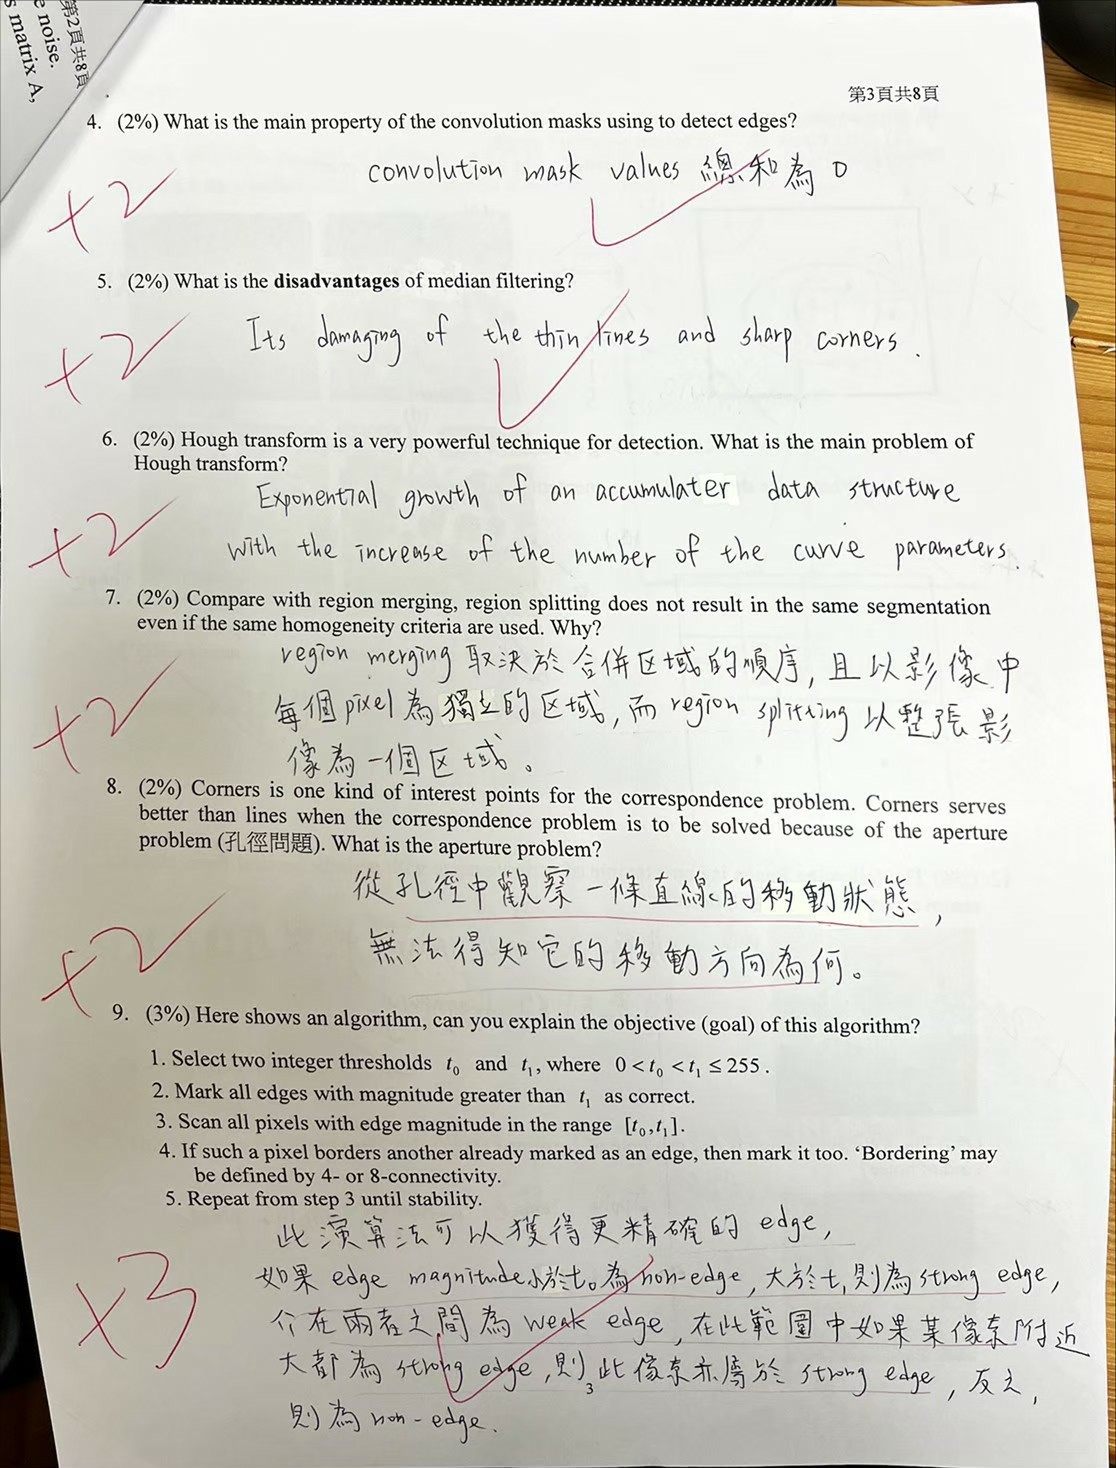 第2頁共8頁
e noise.
s matrix A,
第3頁共8頁
4. (2%) What is the main property of the convolution masks using to detect edges?
convolution mask values 總和為 0
+2
5. (2%) What is the disadvantages of median filtering?
Its damaging of the thin lines and sharp corners.
+2
6. (2%) Hough transform is a very powerful technique for detection. What is the main problem of
Hough transform?
Exponential growth of an accumulater data structure
+2
with the increase of the number of the curve parameters.
7. (2%) Compare with region merging, region splitting does not result in the same segmentation
even if the same homogeneity criteria are used. Why?
region merging 取決於合併区域的順序, 且以影像中
每個pixel為獨立的区域, 而region splitting以整張影
+2
像為一個区域。
8. (2%) Corners is one kind of interest points for the correspondence problem. Corners serves
better than lines when the correspondence problem is to be solved because of the aperture
problem (孔徑問題). What is the aperture problem?
從孔徑中觀察一條直線的移動狀態,
無法得知它的移動方向為何。
+2
9. (3%) Here shows an algorithm, can you explain the objective (goal) of this algorithm?
1. Select two integer thresholds t₀ and t₁, where 0 < t₀ < t₁ ≤ 255.
2. Mark all edges with magnitude greater than t₁ as correct.
3. Scan all pixels with edge magnitude in the range [t₀,t₁].
4. If such a pixel borders another already marked as an edge, then mark it too. ‘Bordering’ may
be defined by 4- or 8-connectivity.
5. Repeat from step 3 until stability.
此演算法可以獲得更精確的 edge,
如果 edge magnitude小於t₀為non-edge, 大於t₁則為strong edge,
+3
介在兩者之間為 weak edge, 在此範圍中如果某像素附近
大都為 strong edge, 則此像素亦屬於 strong edge, 反之,
則為 non-edge.